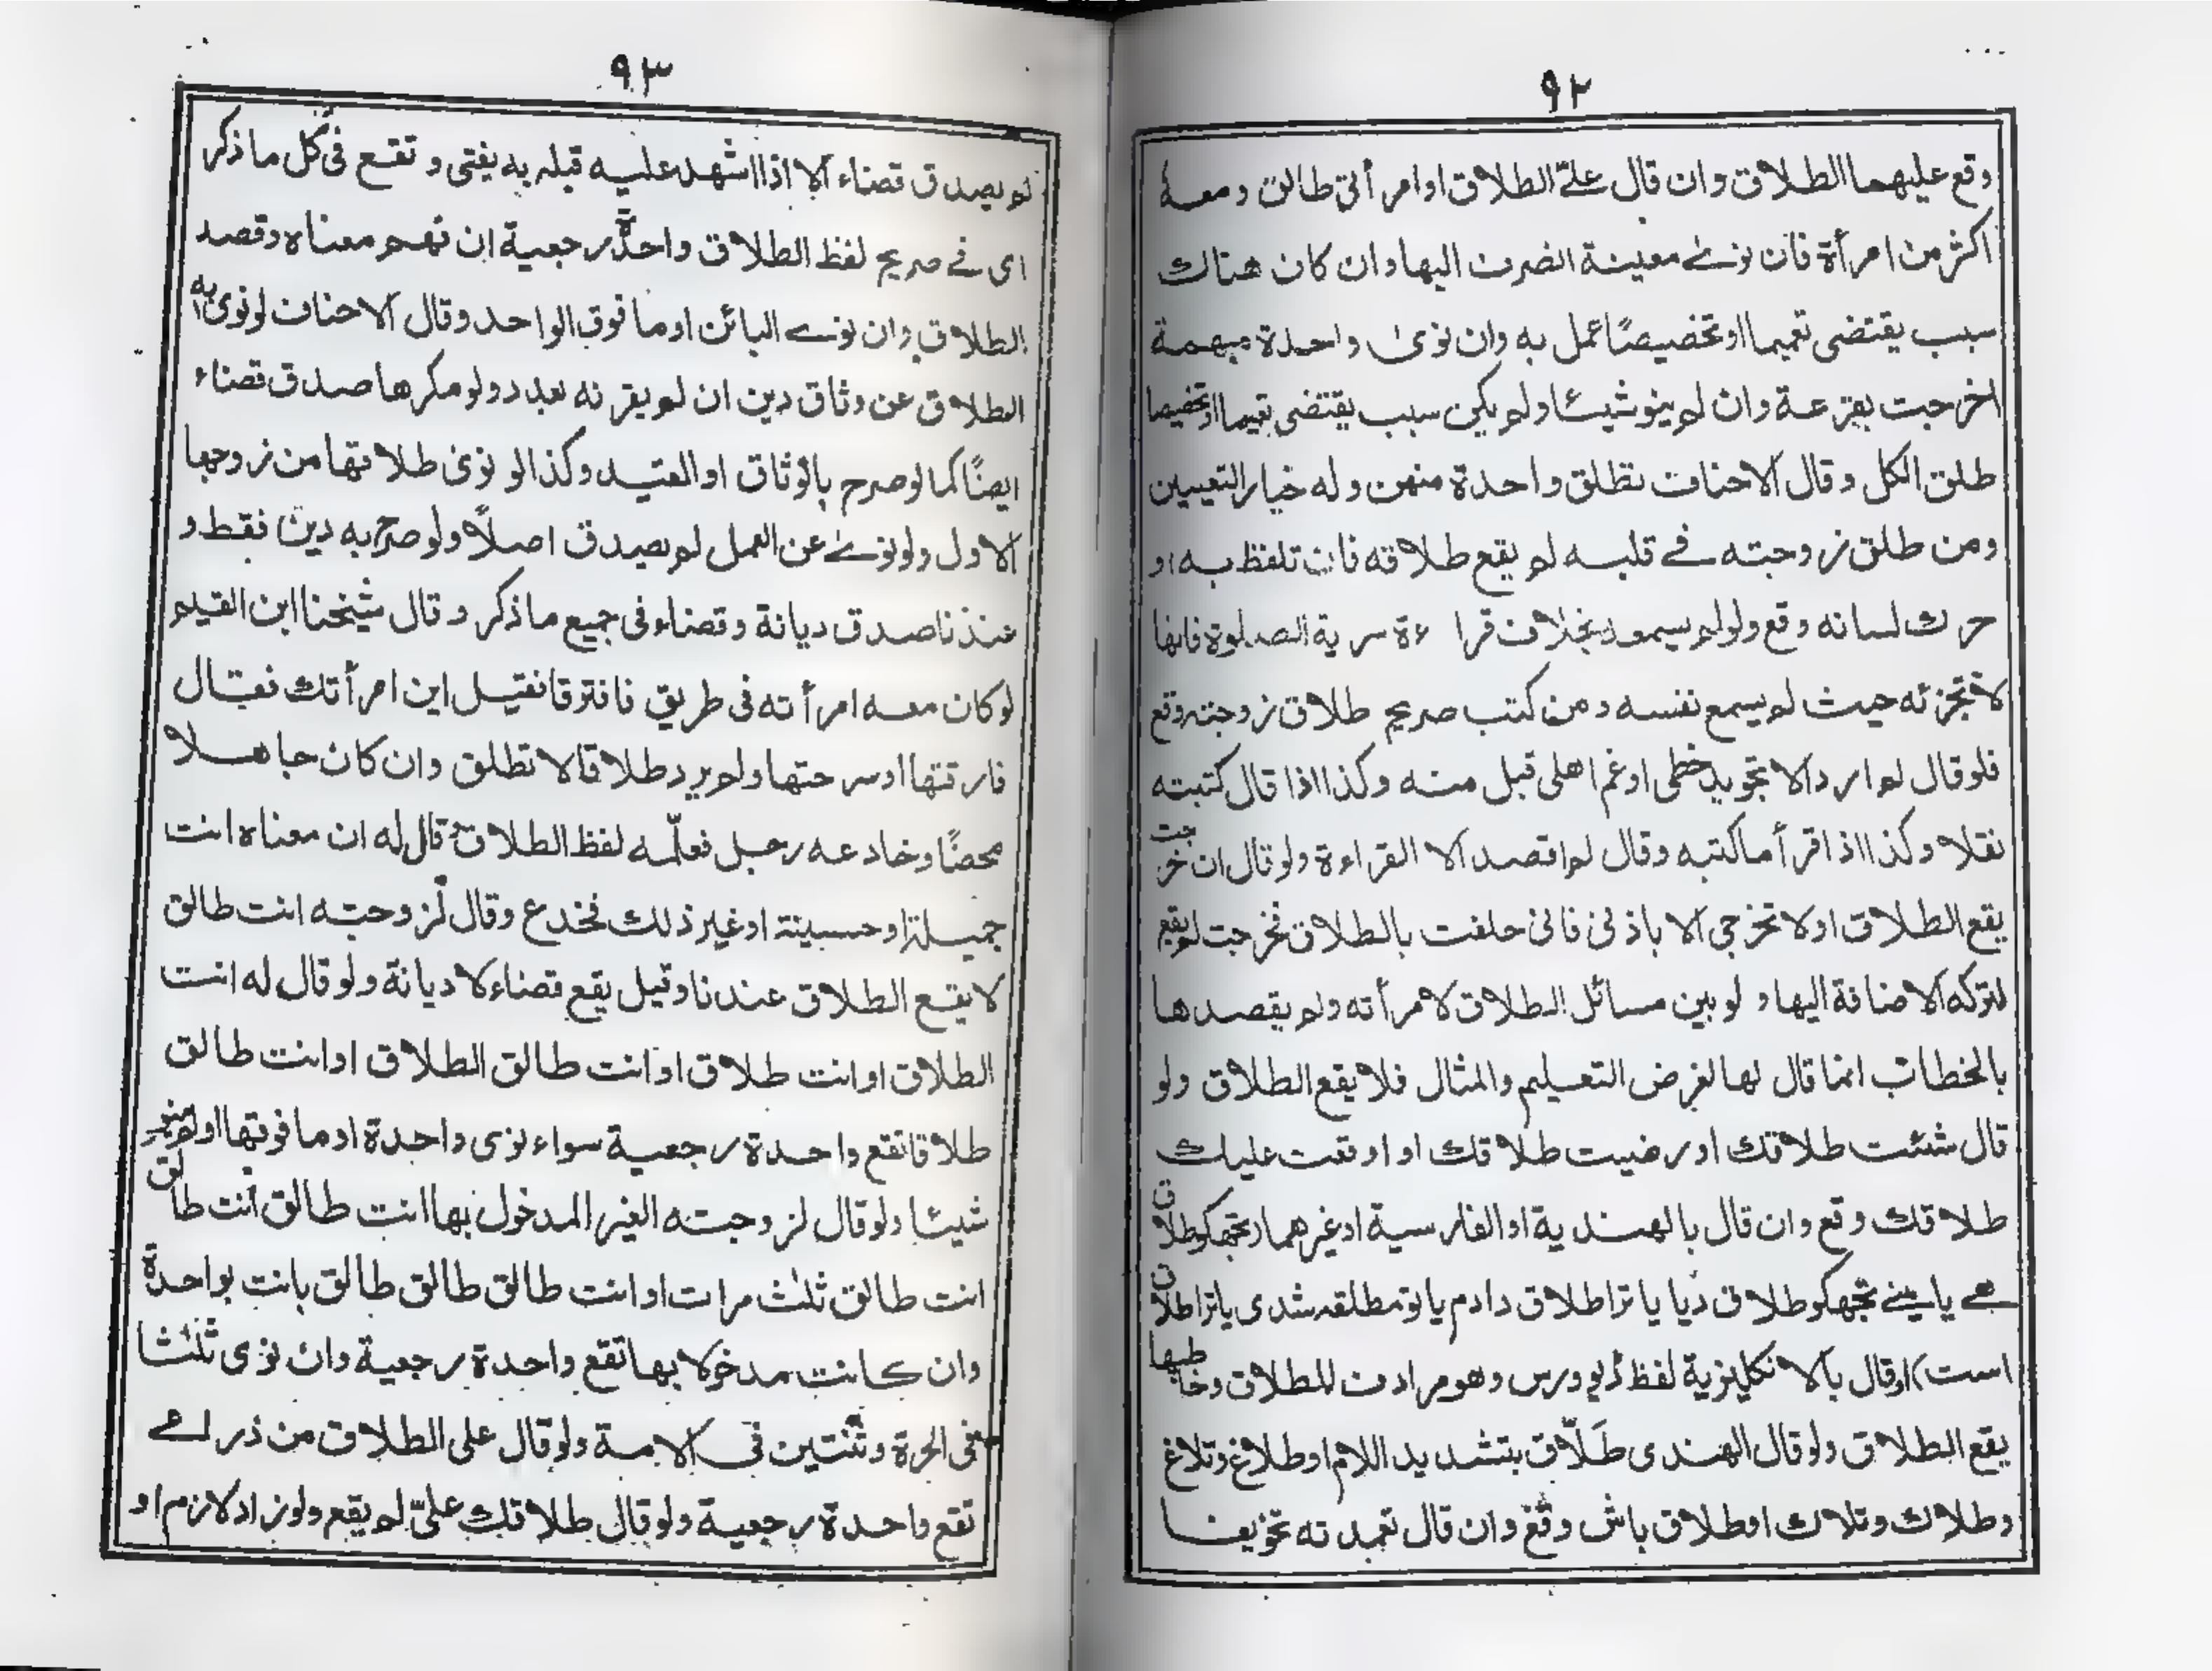 ٩٢
وقع عليهما الطلاق وان قال علىّ الطلاق او امرأتى طالق ومعه
اكثر من امرأة فان نوى معينة انصرف اليها وان كان هناك
سبب يقتضى تعميما او تخصيصًا عمل به وان نوى واحدة مبهمة
اخرجت بقرعة وان لم ينو شيئا ولم يكن سبب يقتضى تعميما او تخصيصا
طلق الكل وقال الاحناف تطلق واحدة منهن وله خيار التعيين
ومن طلق زوجته فى قلبه لم يقع طلاقه فان تلفظ به او
حرك لسانه وقع ولو لم يسمعه بخلاف قراءة سرية الصلوة فانها
لا تجزئه حيث لم يسمع نفسه ومن كتب صريح طلاق زوجته وقع
فلو قال لم ارد الا تجويد خطى او غم اهلى قبل منه وكذا اذا قال كتبته
نقلا وكذا اذا قرأ ما كتبه وقال لم اقصد الا القراءة ولو قال ان خرجت
يقع الطلاق او لا تخرجى الا باذنى فانى حلفت بالطلاق فخرجت لم يقع
لتركه الاضافة اليها ولو بين مسائل الطلاق لامرأته ولم يقصدها
بالخطاب انما قال لها لغرض التعليم والمثال فلا يقع الطلاق ولو
قال شئت طلاقك او رضيت طلاقك او اوقعت عليك
طلاقك وقع وان قال بالهندية او الفارسية او غيرهما (تجھکو طلاق
ہے یا مینے تجھکو طلاق دیا یا ترا طلاق دادم یا تو مطلقہ شدی یا ترا طلاق
است) او قال بالانكليزية لفظ ڈیوورس وهو مرادف للطلاق وخاطبها
يقع الطلاق ولو قال الهندى طَلّاق بتشديد اللام او طلاغ وتلاغ
وطلاك وتلاك او طلاق باش وقع وان قال تعمدته تخويفا
٩٣
لم يصدق قضاء الا اذا اشهد عليه قبله به يفتى وتقع فى كل ما ذكر
اى فى صريح لفظ الطلاق واحدة رجعية ان فهم معناه وقصد
الطلاق وان نوى البائن او ما فوق الواحد وقال الاحناف لو نوى به
الطلاق عن وثاق دين ان لم يقرنه بعدد ولو مكرها صدق قضاء
ايضًا كما لو صرح بالوثاق او القيد وكذا لو نوى طلاقها من زوجها
الاول ولو نوى عن العمل لم يصدق اصلًا ولو صرح به دين فقط و
عندنا صدق ديانة وقضاء فى جميع ما ذكر وقال شيخنا ابن القيم
لو كان معه امرأته فى طريق فافترقا فقيل اين امرأتك فقال
فارقتها او سرحتها ولم يرد طلاقا لا تطلق وان كان جاهلا
محضًا وخادعه رجل فعلّمه لفظ الطلاق قال له ان معناه انت
جميلة او حسينة او غير ذلك فخدع وقال لزوجته انت طالق
لا يقع الطلاق عندنا وقيل يقع قضاء لا ديانة ولو قال له انت
الطلاق او انت طلاق او انت طالق الطلاق او انت طالق
طلاقا تقع واحدة رجعية سواء نوى واحدة او ما فوقها او لم ينو
شيئا ولو قال لزوجته الغير المدخول بها انت طالق انت طالق
انت طالق ثلث مرات او انت طالق طالق طالق بانت بواحدة
وان كانت مدخولا بها تقع واحدة رجعية وان نوى ثلثا
فى الحرة وثنتين فى الامة ولو قال على الطلاق من ذراعى
تقع واحدة رجعية ولو قال طلاقك علىّ لم يقع ولو زاد لازم او